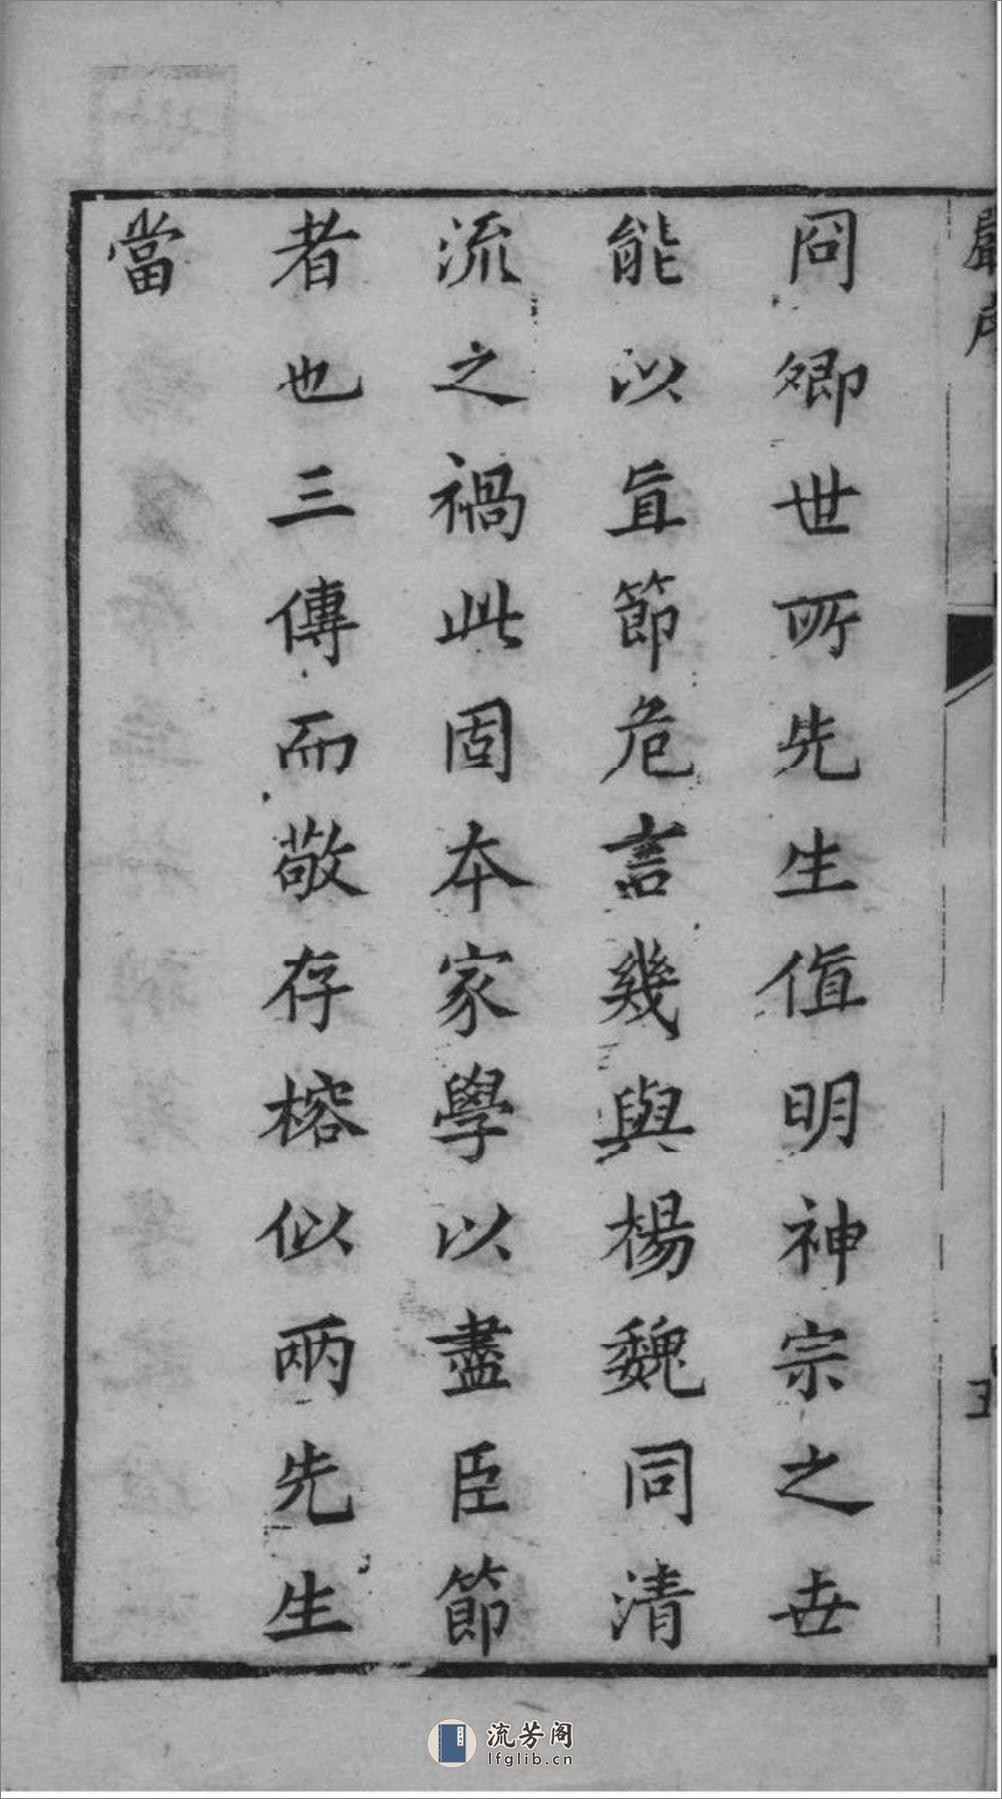 冏卿世所先生值明神宗之世
能以直節危言幾與楊魏同清
流之禍此固本家學以盡臣節
者也三傳而敬存榕似两先生
當
流芳阁
lfglib.cn